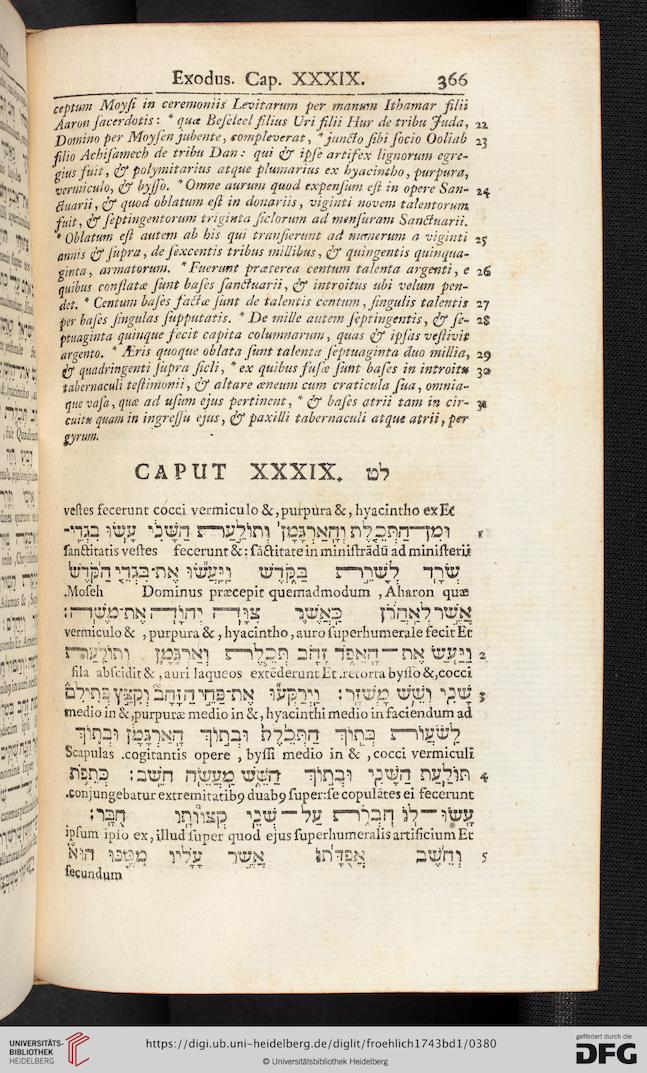 Exodus. Cap. XXXIX. 366
ceptum Moysi in ceremoniis Levitarum per manum Ithamar filii
Aaron sacerdotis: * quæ Beseleel filius Uri filii Hur de tribu Juda, 22
Domino per Moysen jubente, compleverat, * juncto sibi socio Ooliab 23
filio Achisamech de tribu Dan: qui & ipse artifex lignorum egre-
gius fuit, & polymitarius atque plumarius ex hyacintho, purpura,
vermiculo, & bysso. * Omne aurum quod expensum est in opere San- 24
ctuarii, & quod oblatum est in donariis, viginti novem talentorum
fuit, & septingentorum triginta siclorum ad mensuram Sanctuarii.
* Oblatum est autem ab his qui transierunt ad numerum a viginti 25
annis & supra, de sexcentis tribus millibus, & quingentis quinqua-
ginta, armatorum. * Fuerunt præterea centum talenta argenti, e 26
quibus conflatæ sunt bases sanctuarii, & introitus ubi velum pen-
det. * Centum bases factæ sunt de talentis centum, singulis talentis 27
per bases singulas supputatis. * De mille autem septingentis, & se- 28
ptuaginta quinque fecit capita columnarum, quas & ipsas vestivit
argento. * Æris quoque oblata sunt talenta septuaginta duo millia, 29
& quadringenti supra sicli, * ex quibus fusæ sunt bases in introitu 30
tabernaculi testimonii, & altare æneum cum craticula sua, omnia-
que vasa, quæ ad usum ejus pertinent, * & bases atrii tam in cir- 31
cuitu quam in ingressu ejus, & paxilli tabernaculi atque atrii, per
gyrum.
CAPUT XXXIX. לט
vestes fecerunt cocci vermiculo &, purpura &, hyacintho ex Et
וּמִן־הַתְּכֵלֶת וְהָאַרְגָּמָן וְתוֹלַעַת הַשָּׁנִי עָשׂוּ בִגְדֵי־ 1
sanctitatis vestes fecerunt &: sāctitate in ministrādū ad ministerii
שְׂרָד לְשָׁרֵת בַּקֹּדֶשׁ וַיַּעֲשׂוּ אֶת־בִּגְדֵי הַקֹּדֶשׁ
.Moseh Dominus præcepit quemadmodum , Aharon quæ
אֲשֶׁר לְאַהֲרֹן כַּאֲשֶׁר צִוָּה יְהוָֹה אֶת־מֹשֶׁה׃
vermiculo & , purpura & , hyacintho, auro superhumerale fecit Et
וַיַּעַשׂ אֶת־הָאֵפֹד זָהָב תְּכֵלֶת וְאַרְגָּמָן וְתוֹלַעַת 2
fila abscidit & , auri laqueos extēderunt Et .retorta bysso &, cocci
שָׁנִי וְשֵׁשׁ מָשְׁזָר׃ וַיְרַקְּעוּ אֶת־פַּחֵי הַזָּהָב וְקִצֵּץ פְּתִילִם 3
medio in &, purpuræ medio in &, hyacinthi medio in faciendum ad
לַעֲשׂוֹת בְּתוֹךְ הַתְּכֵלֶת וּבְתוֹךְ הָאַרְגָּמָן וּבְתוֹךְ
Scapulas .cogitantis opere , byssi medio in & , cocci vermiculi
תּוֹלַעַת הַשָּׁנִי וּבְתוֹךְ הַשֵּׁשׁ מַעֲשֵׂה חֹשֵׁב׃ כְּתֵפֹת 4
.conjungebatur extremitatib9 duab9 super: se copulātes ei fecerunt
עָשׂוּ־לוֹ חֹבְרֹת עַל־שְׁנֵי קְצוֹותָו חֻבָּר׃
ipsum ipso ex, illud super quod ejus superhumeralis artificium Et
וְחֵשֶׁב אֲפֻדָּתוֹ אֲשֶׁר עָלָיו מִמֶּנּוּ הוּא 5
secundum
UNIVERSITÄTS-
BIBLIOTHEK
HEIDELBERG
https://digi.ub.uni-heidelberg.de/diglit/froehlich1743bd1/0380
© Universitätsbibliothek Heidelberg
gefördert durch die
DFG